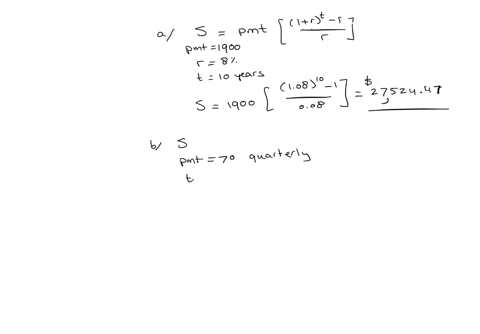 a/ S = pmt [ ((1+r)^t - r) / r ]
pmt = 1900
r = 8%
t = 10 years
S = 1900 [ ((1.08)^10 - 1) / 0.08 ] = $27,524.47
b/ S
pmt = 70 quarterly
t